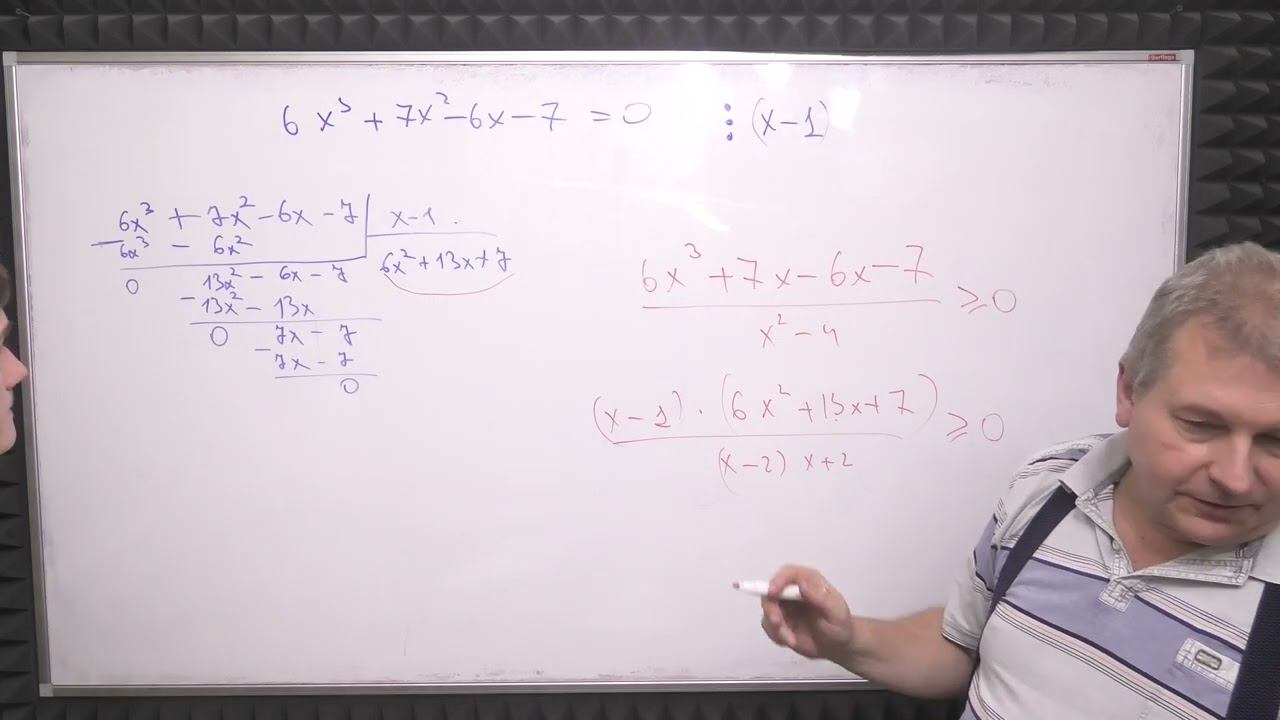 6x³ + 7x² - 6x - 7 = 0 ⋮ (x-1)
6x³ + 7x² - 6x - 7 | x-1
- 6x³ - 6x²
6x² + 13x + 7
0 13x² - 6x - 7
- 13x² - 13x
0 7x - 7
- 7x - 7
0
6x³ + 7x - 6x - 7
⩾ 0
x² - 4
(x-1) · (6x² + 13x + 7)
⩾ 0
(x-2) x+2